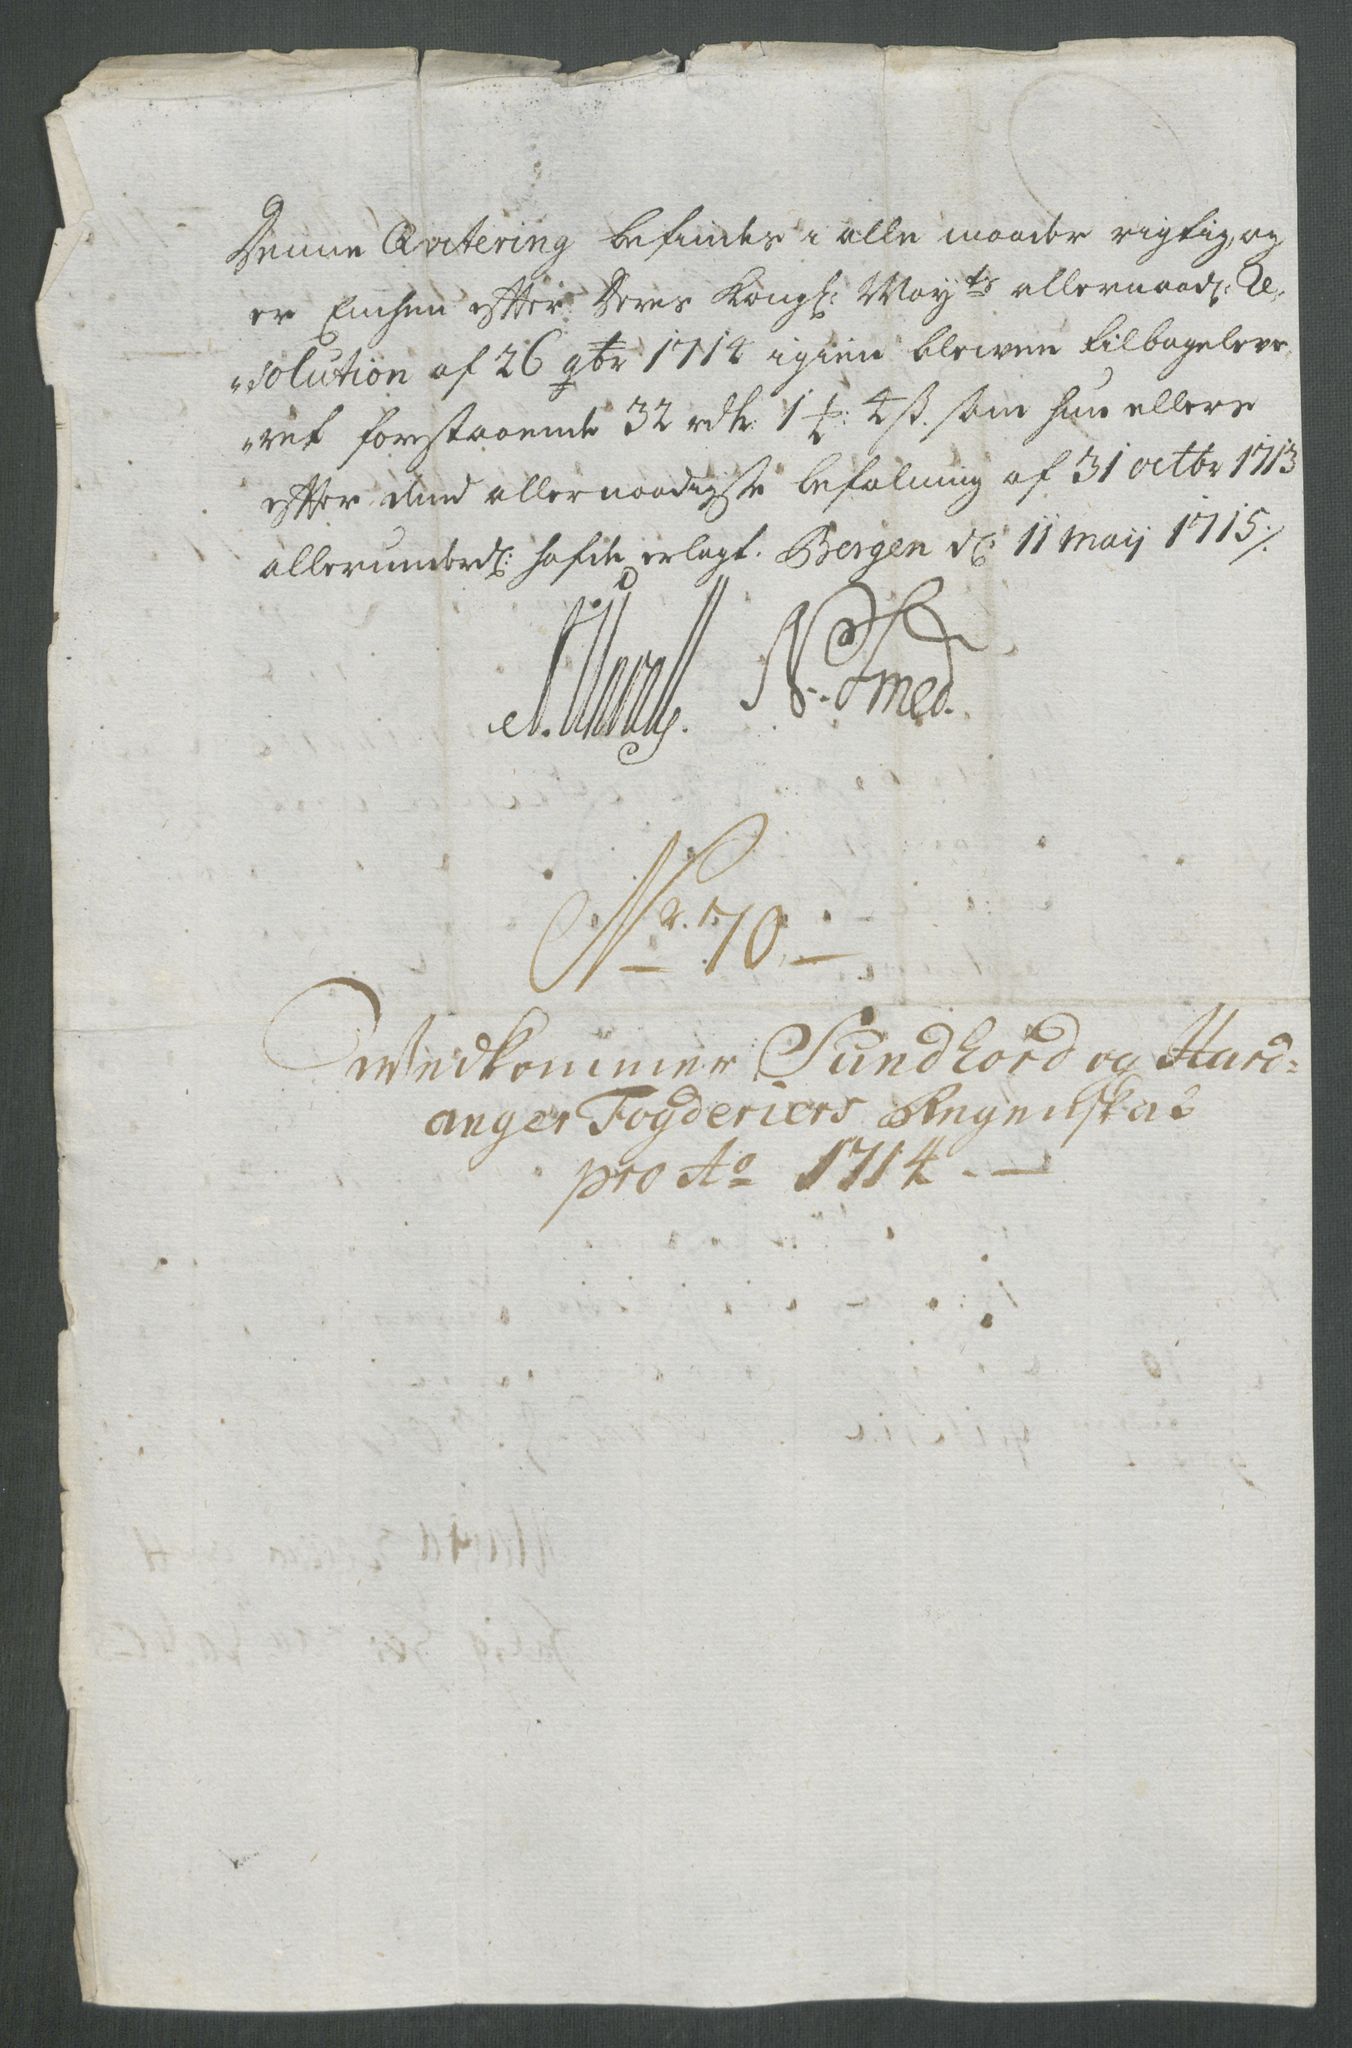 Denne Qvitering befindes i alle maader rigtig, og
er Enchen efter Deres Kongl: May:ts allernaad: Re-
solution af 26 9br 1714 igien bleven tilbageleve-
ret forstaaende 32 rdr: 1 ꝉ: 4 ß. som hun ellers
efter dend allernaadigste befalning af 31 octbr 1713
allerunderd: hafde erlagt. Bergen d: 11 Maij 1715 ./.
N. Smed.
Nr. 70. —
Vedkommer Sundhord og Hard-
anger Fogderiers Regenskab
pro Ao 1714 - —